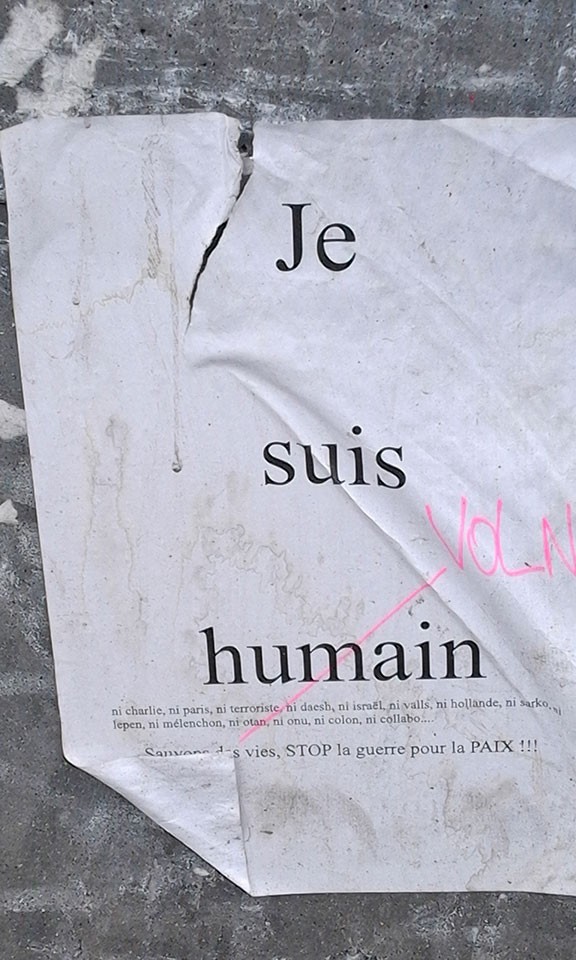 Je
suis
VOLN
humain
ni charlie, ni paris, ni terroriste, ni daesh, ni israël, ni valls, ni hollande, ni sarko, ni
lepen, ni mélenchon, ni otan, ni onu, ni colon, ni collabo....
Sauvons des vies, STOP la guerre pour la PAIX !!!